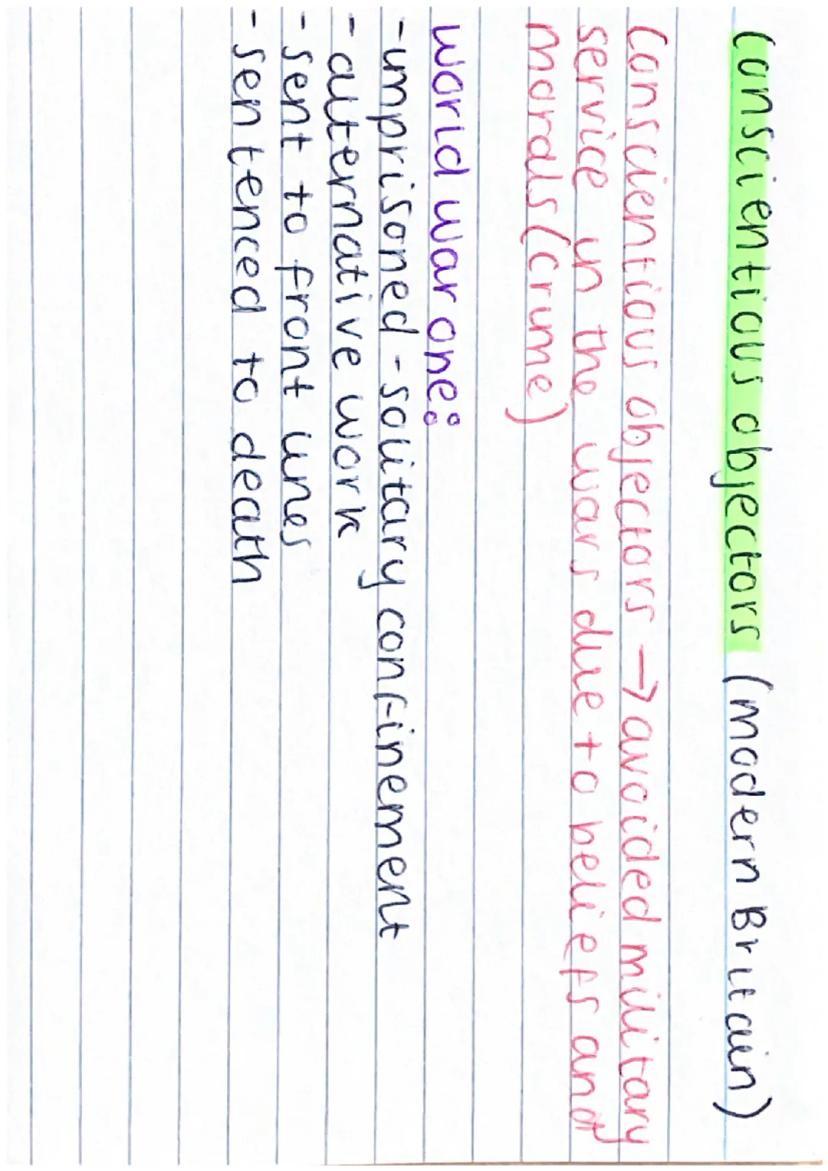 conscientious objectors (modern Britain)
conscientious objectors → avoided military
service in the wars due to beliefs and
morals (crime)
world war one:
- imprisoned - solitary confinement
- alternative work
- sent to front lines
- sentenced to death